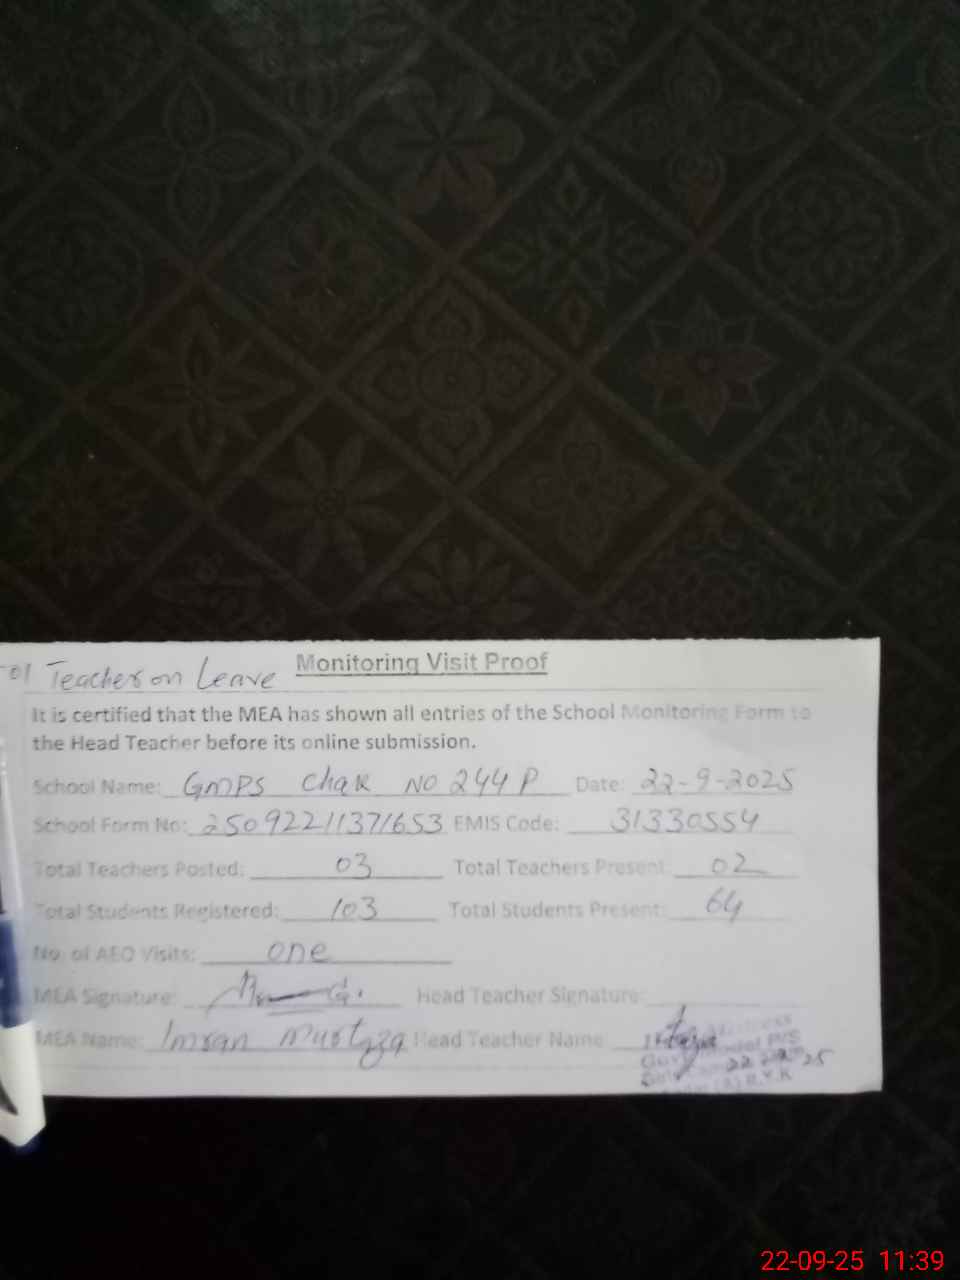 01 Teacher on Leave Monitoring Visit Proof
It is certified that the MEA has shown all entries of the School Monitoring Form to
the Head Teacher before its online submission.
School Name: GMPS Chak NO 244 P Date: 22-9-2025
School Form No: 2509221371653 EMIS Code: 31330554
Total Teachers Posted: 03 Total Teachers Present: 02
Total Students Registered: 103 Total Students Present: 64
No. of AEO Visits: one
MEA Signature: Head Teacher Signature:
MEA Name: Imran Murtaza Head Teacher Name
22 25
R.Y.K
22-09-25 11:39